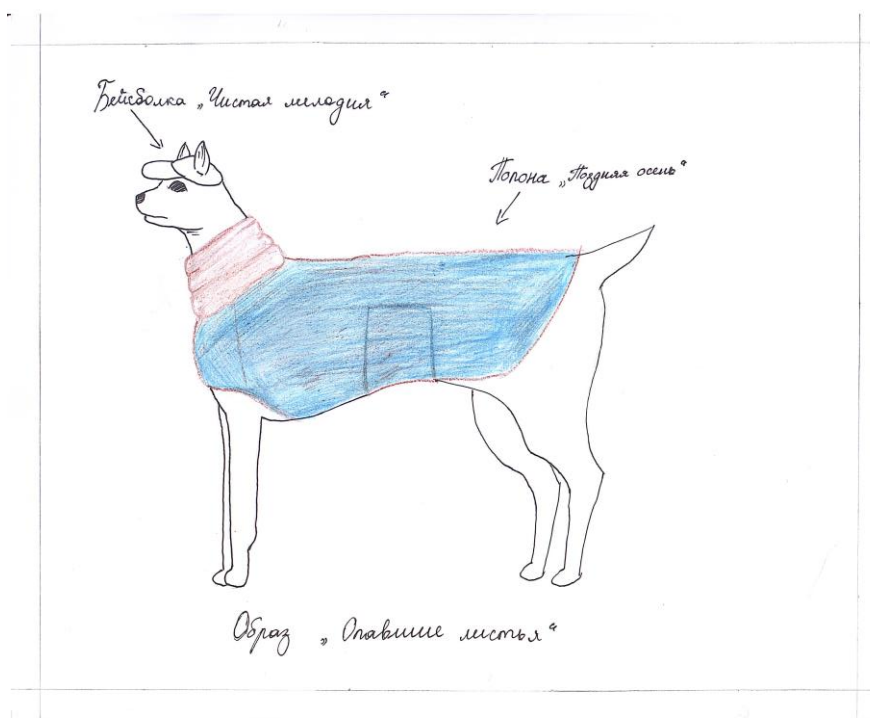 Бейсболка „Чистая мелодия“
Попона „Поздняя осень“
Образ „Опавшие листья“